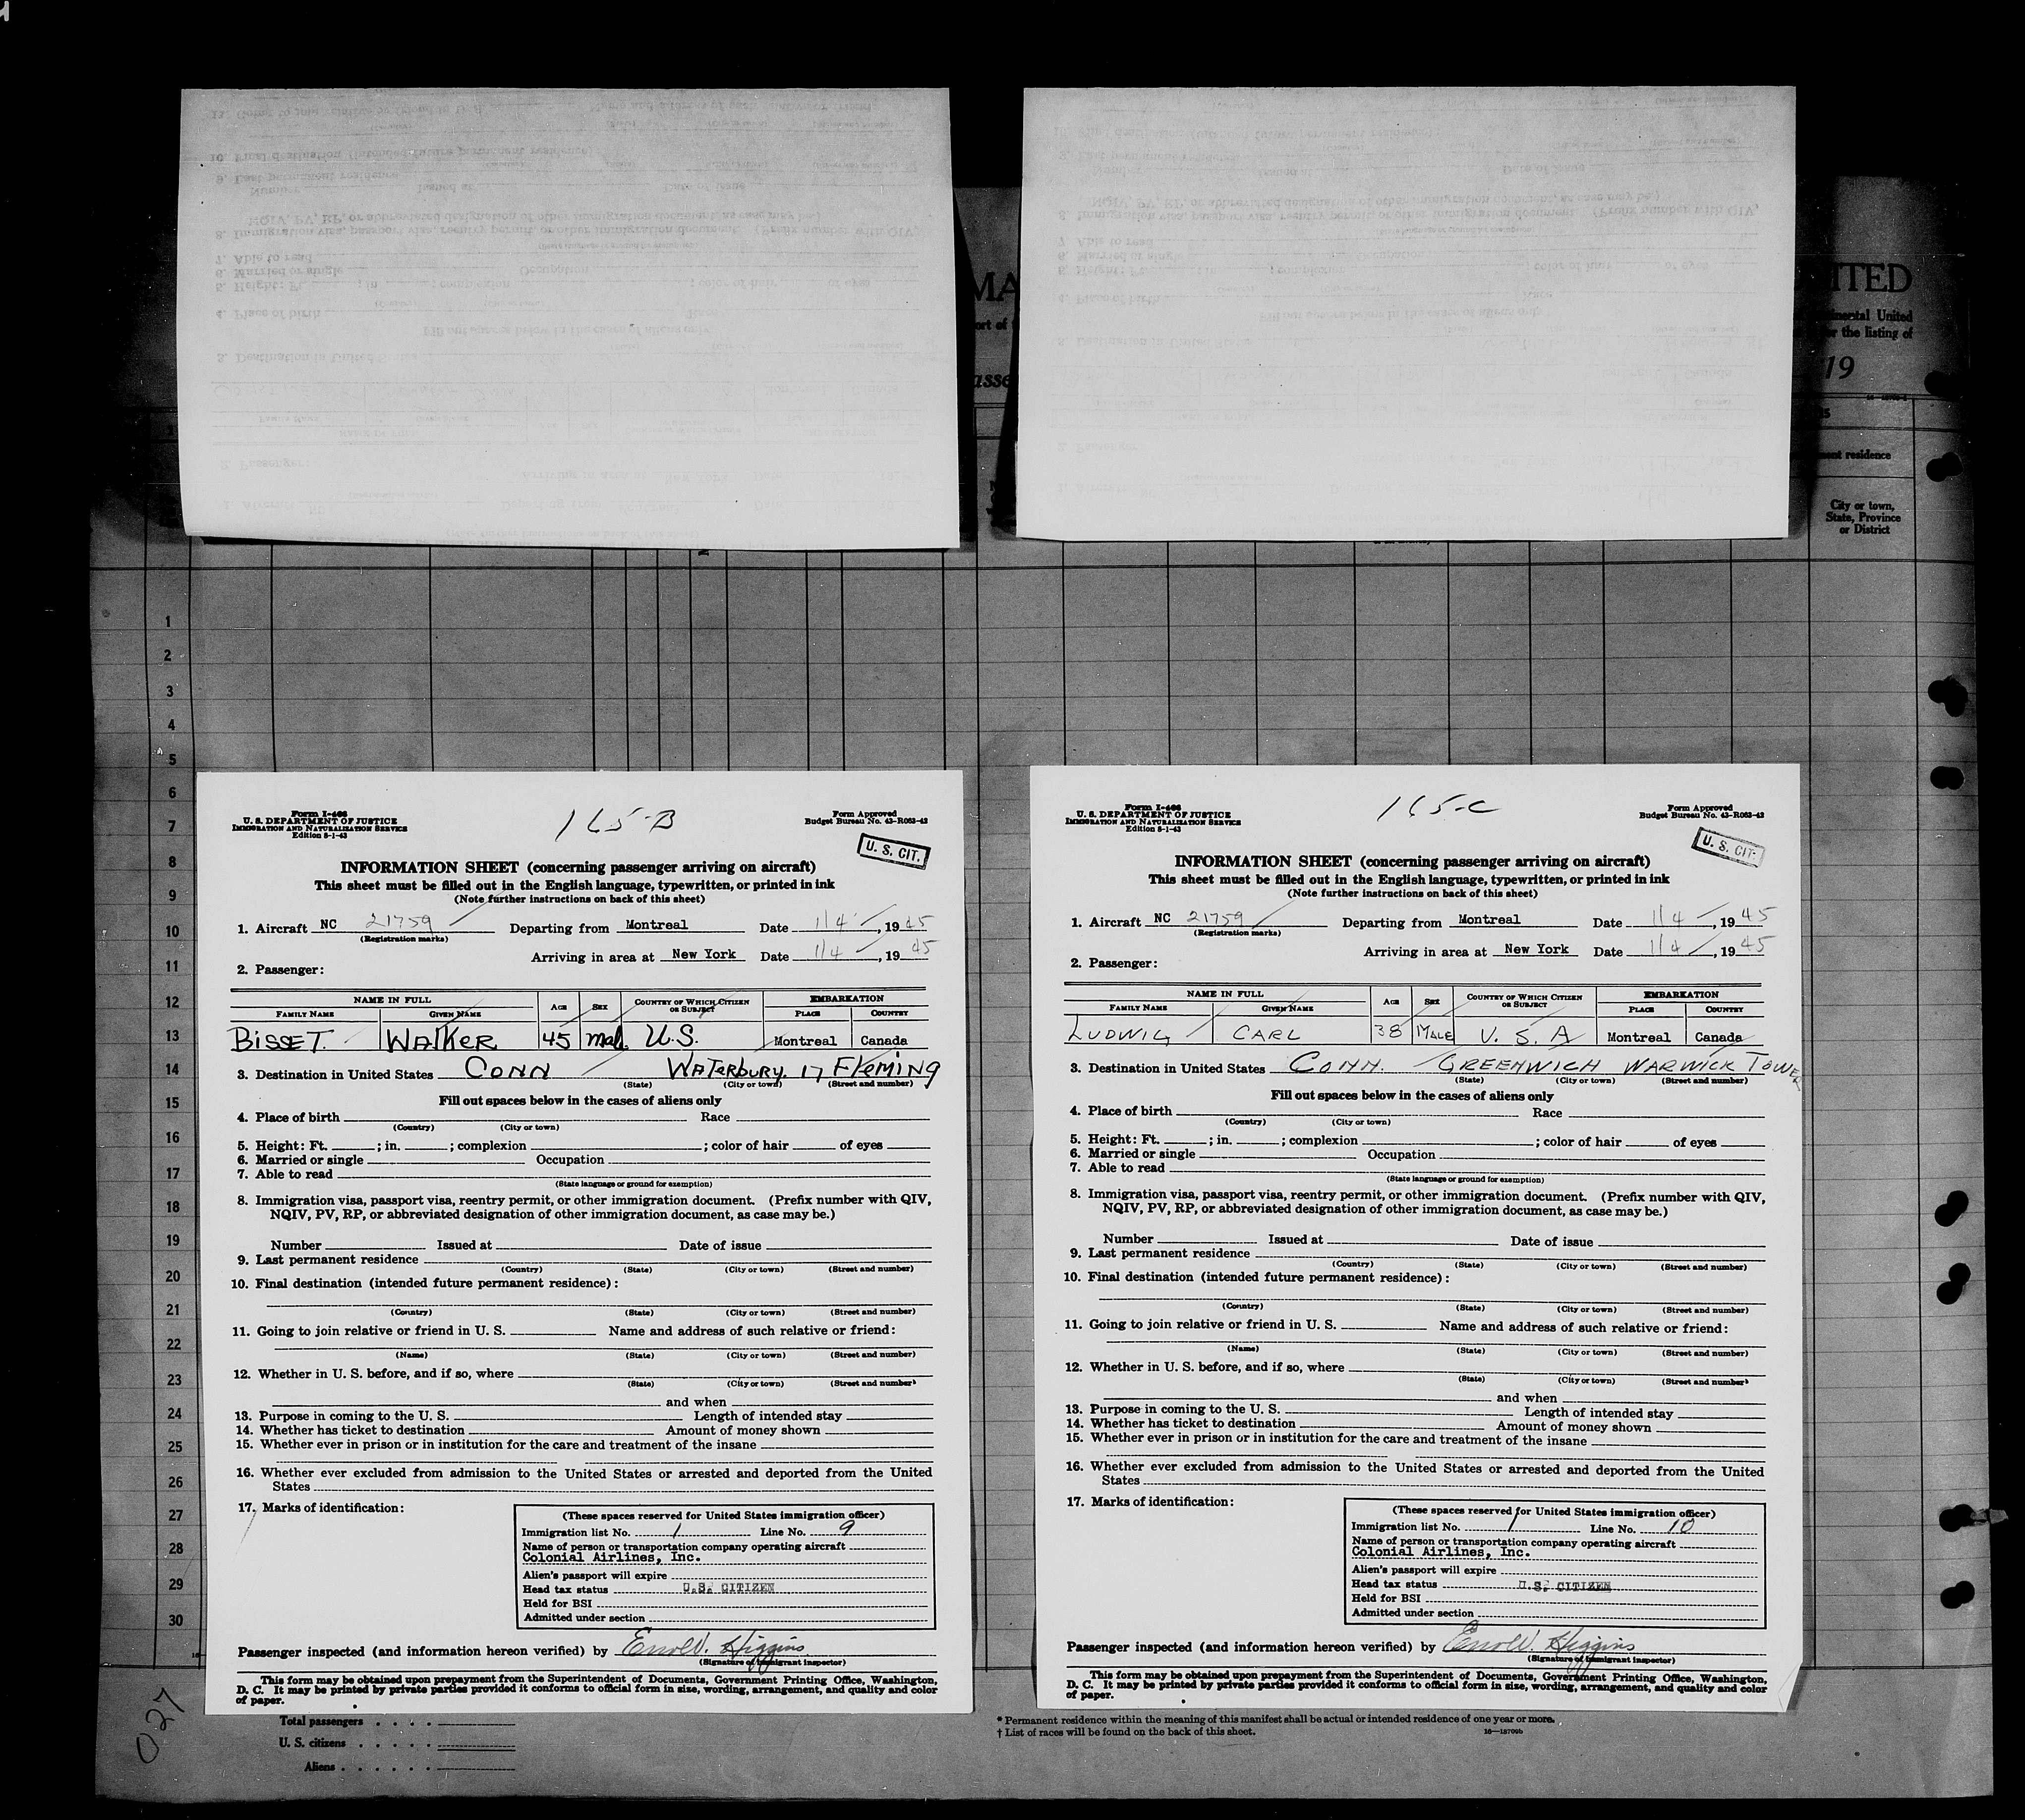 MA
ITED
ort of
inental United
or the listing of
asse
19
nent residence
City or town,
State, Province
or District
1
2
3
4
5
6
7
8
9
10
11
12
13
14
15
16
17
18
19
20
21
22
23
24
25
26
27
28
29
30
165-B
Form I-466
U. S. DEPARTMENT OF JUSTICE
IMMIGRATION AND NATURALIZATION SERVICE
Edition 8-1-43
Form Approved
Budget Bureau No. 43-R063-42
U. S. CIT.
INFORMATION SHEET (concerning passenger arriving on aircraft)
This sheet must be filled out in the English language, typewritten, or printed in ink
(Note further instructions on back of this sheet)
1. Aircraft NC 21759 Departing from Montreal Date 1/4, 1945
(Registration marks)
Arriving in area at New York Date 1/4, 1945
2. Passenger:
NAME IN FULL AGE SEX COUNTRY OF WHICH CITIZEN OR SUBJECT EMBARKATION
FAMILY NAME GIVEN NAME PLACE COUNTRY
BISSET. WALKER 45 Male U.S. Montreal Canada
3. Destination in United States CONN WATERBURY. 17 FLEMING
(State) (City or town) (Street and number)
Fill out spaces below in the cases of aliens only
4. Place of birth Race
(Country) (City or town)
5. Height: Ft. ; in. ; complexion ; color of hair of eyes
6. Married or single Occupation
7. Able to read
(State language or ground for exemption)
8. Immigration visa, passport visa, reentry permit, or other immigration document. (Prefix number with QIV,
NQIV, PV, RP, or abbreviated designation of other immigration document, as case may be.)
Number Issued at Date of issue
9. Last permanent residence
(Country) (State) (City or town) (Street and number)
10. Final destination (intended future permanent residence):
(Country) (State) (City or town) (Street and number)
11. Going to join relative or friend in U. S. Name and address of such relative or friend:
(Name) (State) (City or town) (Street and number)
12. Whether in U. S. before, and if so, where
(State) (City or town) (Street and number)
and when
13. Purpose in coming to the U. S. Length of intended stay
14. Whether has ticket to destination Amount of money shown
15. Whether ever in prison or in institution for the care and treatment of the insane
16. Whether ever excluded from admission to the United States or arrested and deported from the United
States
17. Marks of identification:
(These spaces reserved for United States immigration officer)
Immigration list No. 1 Line No. 9
Name of person or transportation company operating aircraft
Colonial Airlines, Inc.
Alien's passport will expire
Head tax status U.S. CITIZEN
Held for BSI
Admitted under section
Passenger inspected (and information hereon verified) by Errol W. Higgins
(Signature of immigrant inspector)
This form may be obtained upon prepayment from the Superintendent of Documents, Government Printing Office, Washington,
D. C. It may be printed by private parties provided it conforms to official form in size, wording, arrangement, and quality and color
of paper.
165-C
Form I-466
U. S. DEPARTMENT OF JUSTICE
IMMIGRATION AND NATURALIZATION SERVICE
Edition 8-1-43
Form Approved
Budget Bureau No. 43-R063-42
U. S. CIT.
INFORMATION SHEET (concerning passenger arriving on aircraft)
This sheet must be filled out in the English language, typewritten, or printed in ink
(Note further instructions on back of this sheet)
1. Aircraft NC 21759 Departing from Montreal Date 1/4, 1945
(Registration marks)
Arriving in area at New York Date 1/4, 1945
2. Passenger:
NAME IN FULL AGE SEX COUNTRY OF WHICH CITIZEN OR SUBJECT EMBARKATION
FAMILY NAME GIVEN NAME PLACE COUNTRY
LUDWIG CARL 38 MALE U. S. A Montreal Canada
3. Destination in United States CONN. GREENWICH WARWICK TOWER
(State) (City or town) (Street and number)
Fill out spaces below in the cases of aliens only
4. Place of birth Race
(Country) (City or town)
5. Height: Ft. ; in. ; complexion ; color of hair of eyes
6. Married or single Occupation
7. Able to read
(State language or ground for exemption)
8. Immigration visa, passport visa, reentry permit, or other immigration document. (Prefix number with QIV,
NQIV, PV, RP, or abbreviated designation of other immigration document, as case may be.)
Number Issued at Date of issue
9. Last permanent residence
(Country) (State) (City or town) (Street and number)
10. Final destination (intended future permanent residence):
(Country) (State) (City or town) (Street and number)
11. Going to join relative or friend in U. S. Name and address of such relative or friend:
(Name) (State) (City or town) (Street and number)
12. Whether in U. S. before, and if so, where
(State) (City or town) (Street and number)
and when
13. Purpose in coming to the U. S. Length of intended stay
14. Whether has ticket to destination Amount of money shown
15. Whether ever in prison or in institution for the care and treatment of the insane
16. Whether ever excluded from admission to the United States or arrested and deported from the United
States
17. Marks of identification:
(These spaces reserved for United States immigration officer)
Immigration list No. 1 Line No. 10
Name of person or transportation company operating aircraft
Colonial Airlines, Inc.
Alien's passport will expire
Head tax status U.S. CITIZEN
Held for BSI
Admitted under section
Passenger inspected (and information hereon verified) by Errol W. Higgins
(Signature of immigrant inspector)
This form may be obtained upon prepayment from the Superintendent of Documents, Government Printing Office, Washington,
D. C. It may be printed by private parties provided it conforms to official form in size, wording, arrangement, and quality and color
of paper.
027
Total passengers
U. S. citizens
Aliens
* Permanent residence within the meaning of this manifest shall be actual or intended residence of one year or more.
† List of races will be found on the back of this sheet.
16—18709b